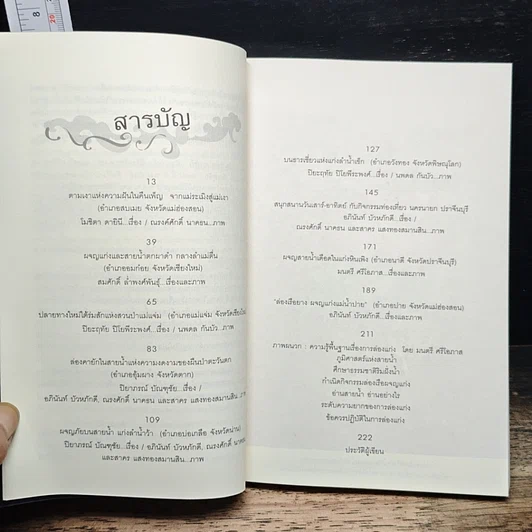 สารบัญ
13
ตามเงาแห่งความฝันในคืนเพ็ญ จากแม่ระเมิงสู่แม่เงา
(อำเภอสบเมย จังหวัดแม่ฮ่องสอน)
โมชิดา ดายินี...เรื่อง / ณรงค์ศักดิ์ นาคธน...ภาพ
39
ผจญแก่งและสายน้ำตกผาดำ กลางลำแม่ตื่น
(อำเภออมก๋อย จังหวัดเชียงใหม่)
สมศักดิ์ ล่ำพงศ์พันธุ์...เรื่องและภาพ
65
ปลายทางใหม่ใต้ร่มสักแห่งสวนป่าแม่แจ่ม (อำเภอแม่แจ่ม จังหวัดเชียงใหม่)
ปิยะฤทัย ปิโยพีระพงศ์... เรื่อง / นพดล กันบัว...ภาพ
83
ล่องคายักในสายน้ำแห่งความงดงามของผืนป่าตะวันตก
(อำเภออุ้มผาง จังหวัดตาก)
ปิยาภรณ์ บัณฑุชัย...เรื่อง /
อภินันท์ บัวหภักดี, ณรงค์ศักดิ์ นาคธน และสาคร แสงทองสมานสิน...ภาพ
109
ผจญภัยบนสายน้ำ แก่งลำน้ำว้า (อำเภอบ่อเกลือ จังหวัดน่าน)
ปิยาภรณ์ บัณฑุชัย...เรื่อง / อภินันท์ บัวหภักดี, ณรงค์ศักดิ์ นาคธน
และสาคร แสงทองสมานสิน...ภาพ
127
บนธารเชี่ยวแห่งแก่งลำน้ำเข็ก (อำเภอวังทอง จังหวัดพิษณุโลก)
ปิยะฤทัย ปิโยพีระพงศ์...เรื่อง / นพดล กันบัว...ภาพ
145
สนุกสนานวันเสาร์-อาทิตย์ กับกิจกรรมท่องเที่ยว นครนายก ปราจีนบุรี
อภินันท์ บัวหภักดี...เรื่อง /
ณรงค์ศักดิ์ นาคธน และสาคร แสงทองสมานสิน...ภาพ
171
ผจญสายน้ำเดือดในแก่งหินเพิง (อำเภอนาดี จังหวัดปราจีนบุรี)
มนตรี ศรีโอภาส...เรื่องและภาพ
189
"ล่องเรือยาง ผจญแก่งแม่น้ำปาย" (อำเภอปาย จังหวัดแม่ฮ่องสอน)
อภินันท์ บัวหภักดี...เรื่องและภาพ
211
ภาคผนวก : ความรู้พื้นฐานเรื่องการล่องแก่ง โดย มนตรี ศรีโอภาส
ภูมิศาสตร์แห่งสายน้ำ
ศึกษาธรรมชาติริมฝั่งน้ำ
กำเนิดกิจกรรมล่องเรือผจญแก่ง
อ่านสายน้ำ อ่านอย่างไร
ระดับความยากของการล่องแก่ง
ข้อควรปฏิบัติในการล่องแก่ง
222
ประวัติผู้เขียน
8
20